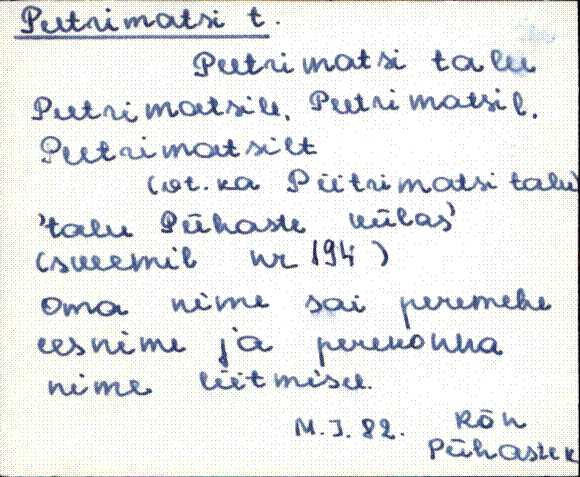 Peetrimatsi t.
Peetrimatsi talu
Peetrimatsile, Peetrimatsil,
Peetrimatsilt
(vt. ka Piitrimatsi talu)
'talu Pühaste külas'
(skeemil nr 194)
Oma nime sai peremehe
eesnime ja perekonna
nime liitmisel.
M. J. 82. Rõn
Pühaste k